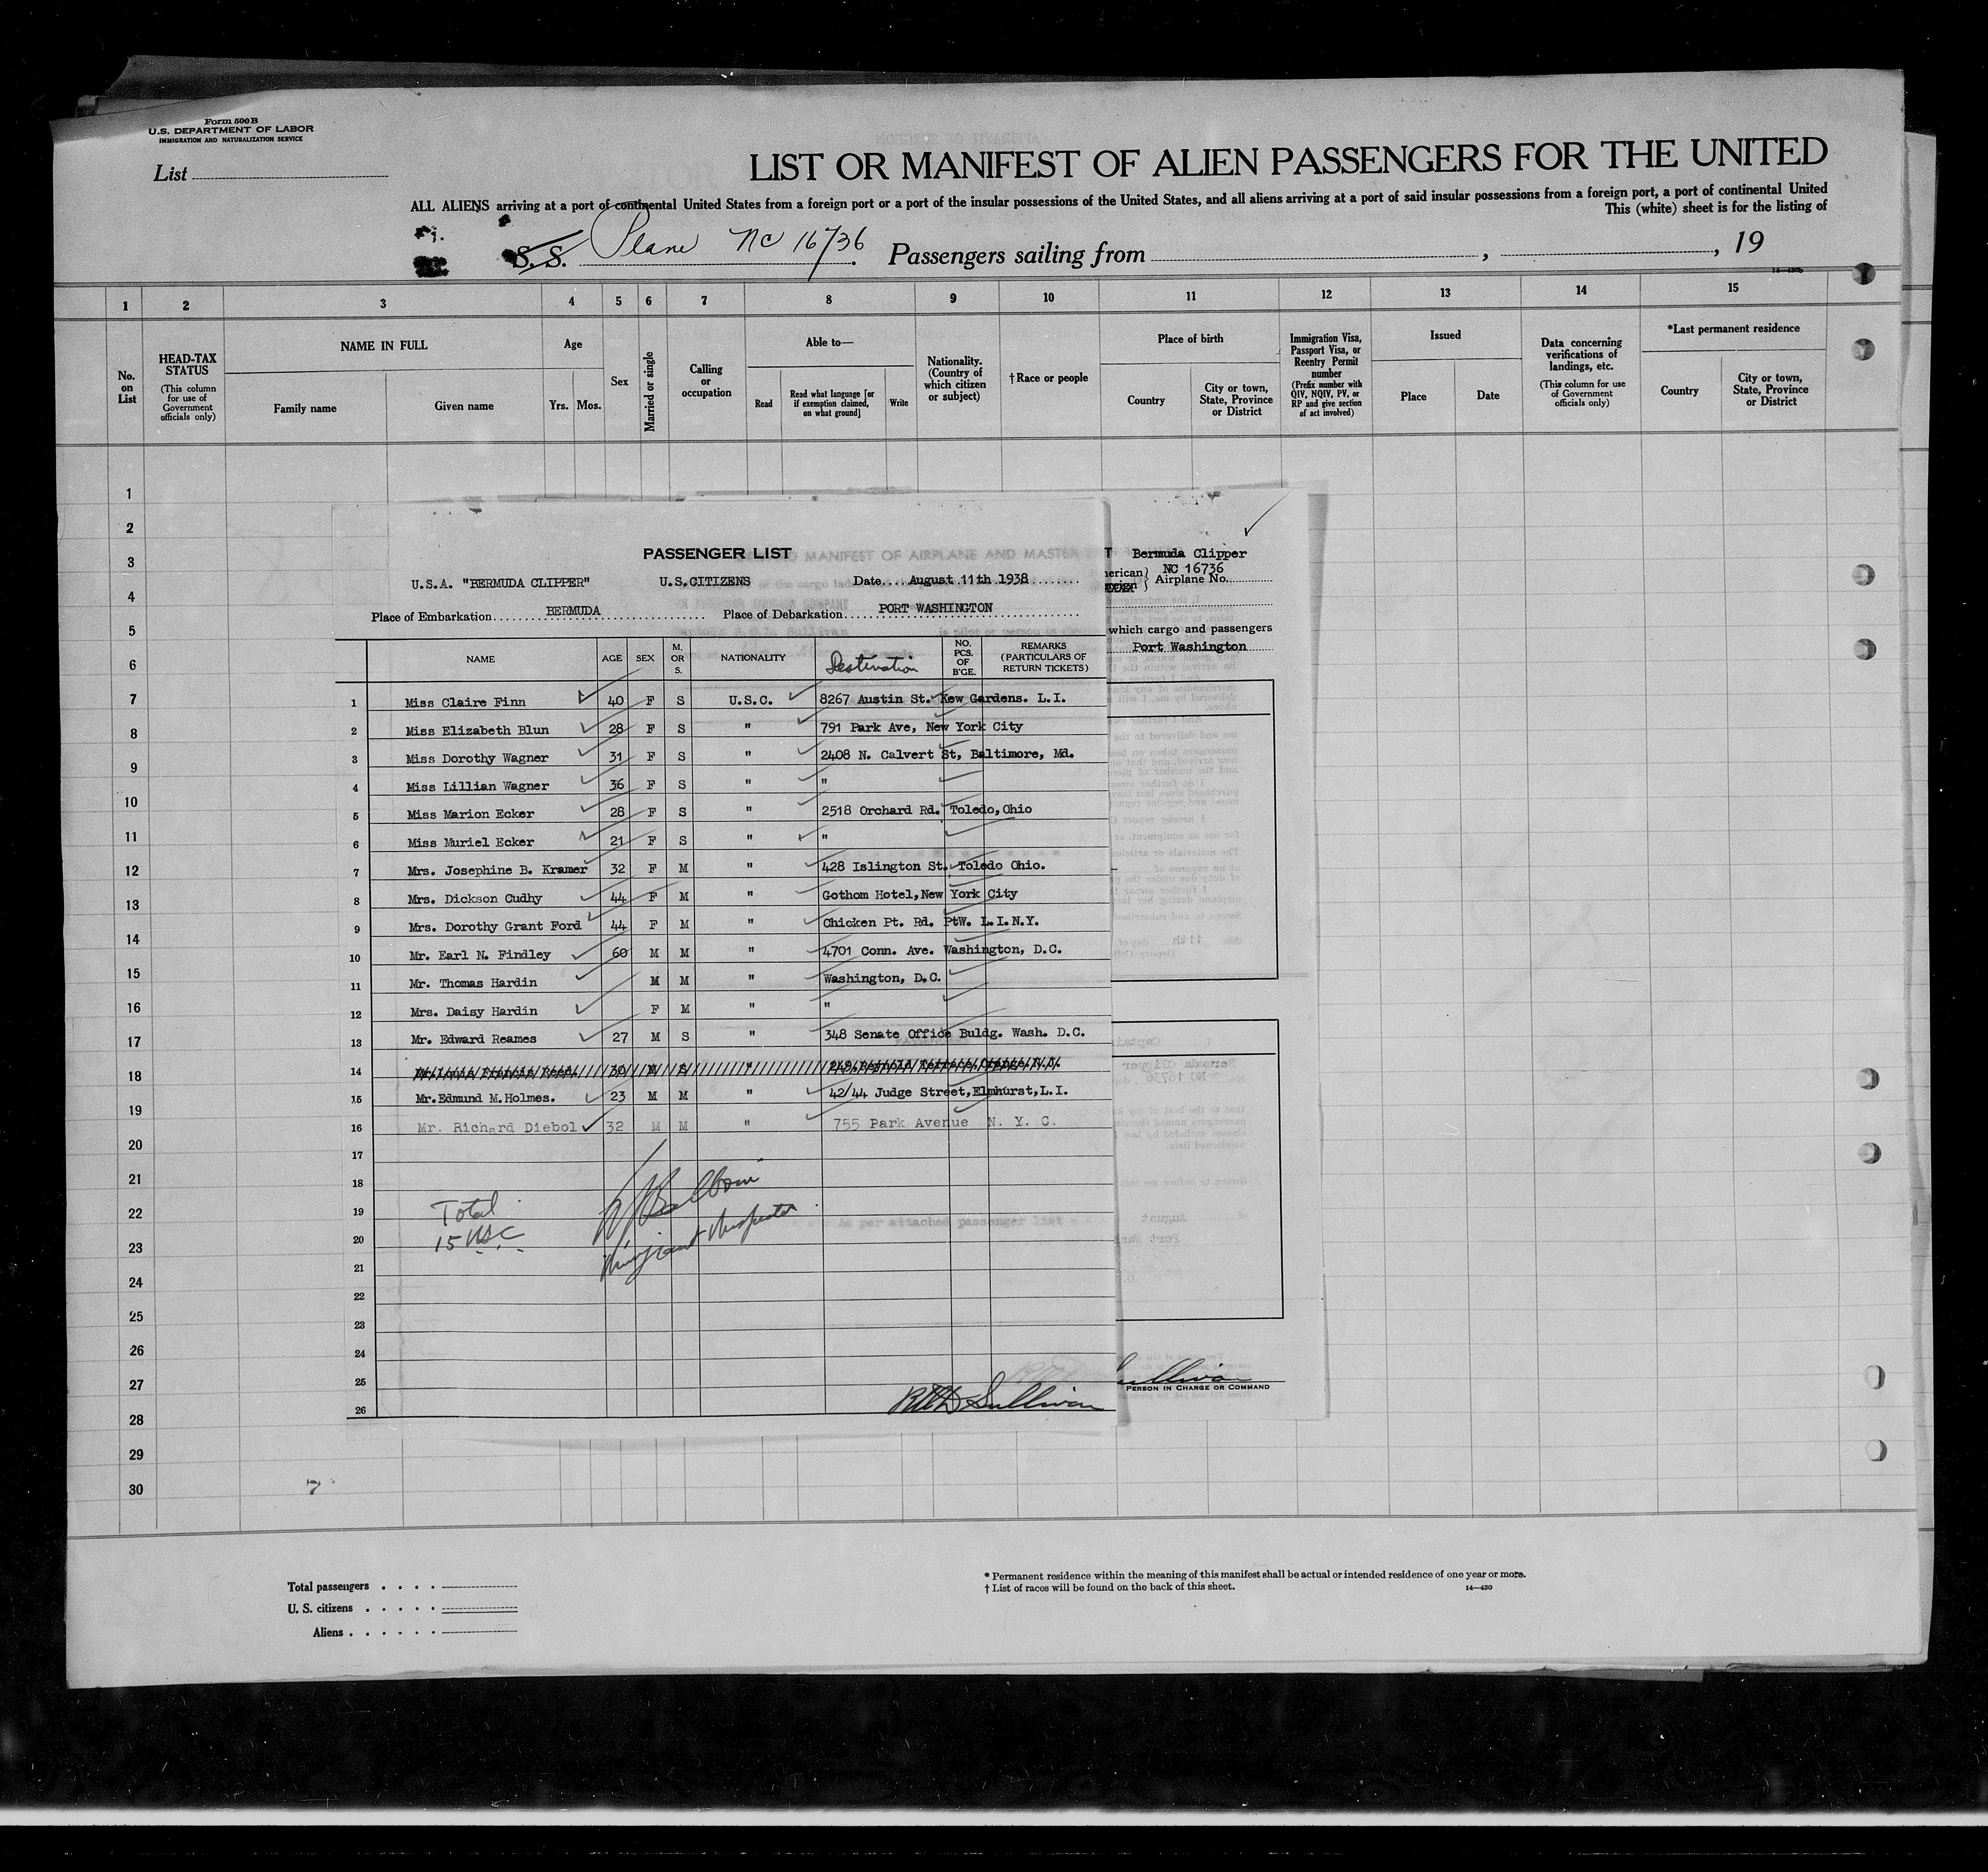 Form 500B
U.S. DEPARTMENT OF LABOR
IMMIGRATION AND NATURALIZATION SERVICE
List
LIST OR MANIFEST OF ALIEN PASSENGERS FOR THE UNITED
ALL ALIENS arriving at a port of continental United States from a foreign port or a port of the insular possessions of the United States, and all aliens arriving at a port of said insular possessions from a foreign port, a port of continental United
This (white) sheet is for the listing of
S. S. Plane NC 16736 Passengers sailing from , , 19
1 2 3 4 5 6 7 8 9 10 11 12 13 14 15
No. on List
HEAD-TAX STATUS
(This column for use of Government officials only)
NAME IN FULL
Family name
Given name
Age
Yrs. Mos.
Sex
Married or single
Calling or occupation
Able to—
Read
Read what language [or if exemption claimed, on what ground]
Write
Nationality. (Country of which citizen or subject)
† Race or people
Place of birth
Country
City or town, State, Province or District
Immigration Visa, Passport Visa, or Reentry Permit number
(Prefix number with QIV, NQIV, PV, or RP and give section of act involved)
Issued
Place
Date
Data concerning verifications of landings, etc.
(This column for use of Government officials only)
*Last permanent residence
Country
City or town, State, Province or District
1
2
3
4
5
6
7
8
9
10
11
12
13
14
15
16
17
18
19
20
21
22
23
24
25
26
27
28
29
30
PASSENGER LIST
U.S.A. "BERMUDA CLIPPER" U.S.CITIZENS Date....August 11th 1938
Place of Embarkation BERMUDA Place of Debarkation PORT WASHINGTON
NAME AGE SEX M. OR S. NATIONALITY Destination NO. PCS. OF B'GE. REMARKS (PARTICULARS OF RETURN TICKETS)
1 Miss Claire Finn 40 F S U.S.C. 8267 Austin St. Kew Gardens. L.I.
2 Miss Elizabeth Blun 28 F S " 791 Park Ave, New York City
3 Miss Dorothy Wagner 31 F S " 2408 N. Calvert St, Baltimore, Md.
4 Miss Lillian Wagner 36 F S " "
5 Miss Marion Ecker 28 F S " 2518 Orchard Rd. Toledo,Ohio
6 Miss Muriel Ecker 21 F S " "
7 Mrs. Josephine B. Kramer 32 F M " 428 Islington St. Toledo Ohio.
8 Mrs. Dickson Cudhy 44 F M " Gothom Hotel,New York City
9 Mrs. Dorothy Grant Ford 44 F M " Chicken Pt. Rd. PtW. L.I.N.Y.
10 Mr. Earl N. Findley 60 M M " 4701 Conn. Ave. Washington, D.C.
11 Mr. Thomas Hardin M M " Washington, D.C.
12 Mrs. Daisy Hardin F M " "
13 Mr. Edward Reames 27 M S " 348 Senate Office Buldg. Wash. D.C.
14 30 M S " Terrace, Orange N.J.
15 Mr.Edmund M.Holmes. 23 M M " 42/44 Judge Street,Elmhurst,L.I.
16 Mr. Richard Diebol 32 M M " 755 Park Avenue N. Y. C.
17
18
19
20
21
22
23
24
25
26
Total
15 USC
Immigrant Inspector
Sullivan
Bermuda Clipper
NC 16736
Airplane No.
which cargo and passengers
Port Washington
As per attached passenger list
Sullivan
PERSON IN CHARGE OR COMMAND
7
Total passengers
U. S. citizens
Aliens
* Permanent residence within the meaning of this manifest shall be actual or intended residence of one year or more.
† List of races will be found on the back of this sheet.
14—430